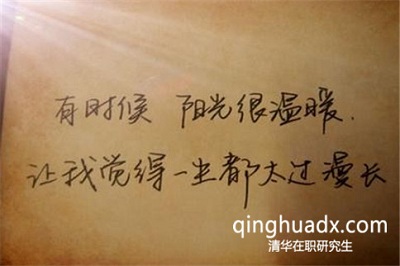 有时候 阳光很温暖.
让我觉得一生都太过漫长
qinghuadx.com
清华在职研究生